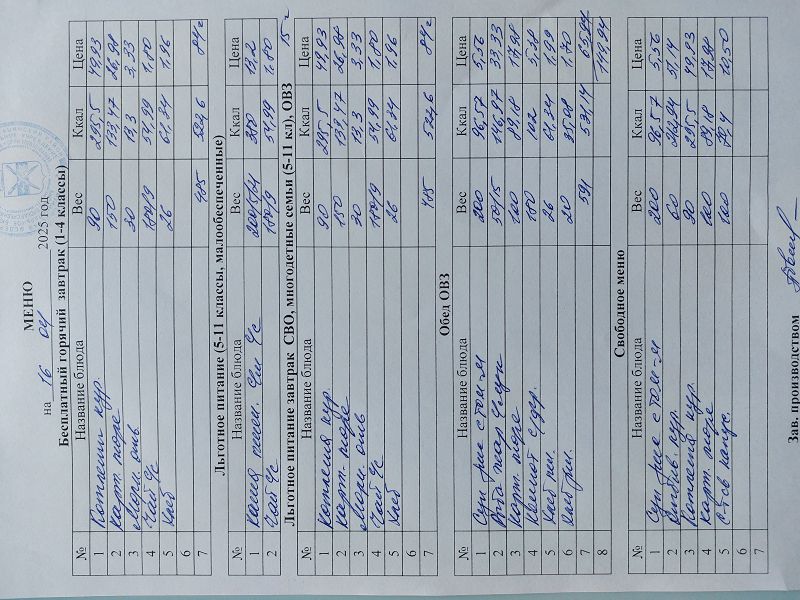 МЕНЮ
на 16 04 2025 год
Бесплатный горячий завтрак (1-4 классы)
№ Название блюда Вес Ккал Цена
1 Котлета кур. 90 295,5 49,93
2 Карт. пюре 150 133,47 26,98
3 Могл. овощ 30 13,3 3,33
4 Чай с/с 180/9 54,99 1.80
5 Хлеб 26 61.34 1.96
6
7 485 84 г
Льготное питание (5-11 классы, малообеспеченные)
№ Название блюда Вес Ккал Цена
1 Каша 200/5/24 380 13,2
2 Чай с/с 180/9 54,99 1.80
15 г
Льготное питание завтрак СВО, многодетные семьи (5-11 кл), ОВЗ
№ Название блюда Вес Ккал Цена
1 Котлета кур. 90 295,5 49,93
2 Карт. пюре 150 133,47 26,98
3 30 13.3 3,33
4 Чай с/с 180/9 54,99 1.80
5 Хлеб 26 61.34 1.96
6
7 485 84 г
Обед ОВЗ
№ Название блюда Вес Ккал Цена
1 Суп рис с том-м 200 96,57 5,56
2 50/15 146,87 33,33
3 Карт. пюре 100 89,18 17,98
4 Кисель 180 102 5,38
5 Хлеб пш. 26 61.34 1.99
6 Хлеб рж. 20 35.08 1.70
7 591 531,14 65,94
8 149,94
Свободное меню
№ Название блюда Вес Ккал Цена
1 Суп рис с том-м 200 96.57 5,56
2 кур. 60
3 Котлета кур. 90 295,5 49,93
4 Карт. пюре 100 89,18 17,98
5 100 10,50
6
7
Зав. производством